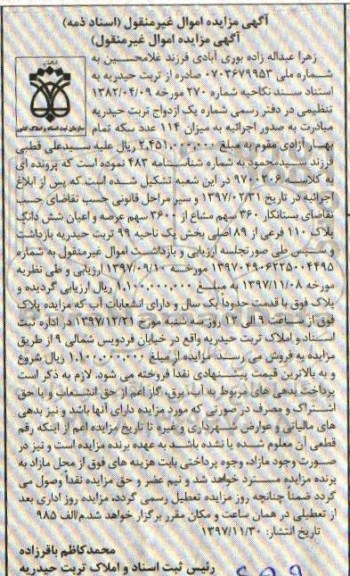 آگهی مزایده اموال غیرمنقول (اسناد ذمه)
آگهی مزایده اموال غیرمنقول)
زهرا عبداله زاده بوری آبادی فرزند غلامحسین به
شماره ملی ۰۷۰۳۶۷۹۹۵۳ صادره از تربت حیدریه به
استناد سند نکاحیه شماره ۲۷۰ مورخه ۱۳۸۲/۰۴/۰۹
تنظیمی در دفتر رسمی شماره یک ازدواج تربت حیدریه
مبادرت به صدور اجرائیه به میزان ۱۱۴ عدد سکه تمام
بهار آزادی مقوم به مبلغ ۲،۴۵۱،۰۰۰،۰۰۰ ریال علیه سیدعلی قطبی
فرزند سیدمحمود به شماره شناسنامه ۴۸۳ نموده است که پرونده ای
به کلاسه ۹۷۰۰۲۰۶ در این شعبه تشکیل شده است که پس از ابلاغ
اجرائیه در تاریخ ۱۳۹۷/۰۲/۳۱ و سیر مراحل قانونی حسب تقاضای حسب
تقاضای بستانکار ۳۶۰ سهم مشاع از ۳۶۰۰ سهم عرصه و اعیان شش دانگ
پلاک ۱۱۰ فرعی از ۸۹ اصلی بخش یک ناحیه ۹۹ تربت حیدریه بازداشت
و سپس طی صورتجلسه ارزیابی و بازداشت اموال غیرمنقول به شماره
۱۳۹۷۰۴۹۰۶۲۲۵۰۰۴۴۹۵ مورخه ۱۳۹۷/۰۹/۱۰ ارزیابی و طی نظریه
مورخه ۱۳۹۷/۱۱/۰۸ به مبلغ ۱،۱۰۰،۰۰۰،۰۰۰ ریال ارزیابی گردیده و
پلاک فوق با قدمت حدوداً یک سال و دارای انشعابات آب که مزایده پلاک
فوق از ساعت ۹ الی ۱۲ روز سه شنبه مورخ ۱۳۹۷/۱۲/۲۱ در اداره ثبت
اسناد و املاک تربت حیدریه واقع در خیابان فردوسی شمالی ۹ از طریق
مزایده به فروش می رسد. مزایده از مبلغ ۱،۱۰۰،۰۰۰،۰۰۰ ریال شروع
و به بالاترین قیمت پیشنهادی نقداً فروخته می شود. لازم به ذکر است
پرداخت بدهی های مربوط به آب، برق، گاز اعم از حق انشعاب و یا حق
اشتراک و مصرف در صورتی که مورد مزایده دارای آنها باشد و نیز بدهی
های مالیاتی و عوارض شهرداری و غیره تا تاریخ مزایده اعم از اینکه رقم
قطعی آن معلوم شده یا نشده باشد به عهده برنده مزایده است و نیز در
صورت وجود مازاد، وجوه پرداختی بابت هزینه های فوق از محل مازاد به
برنده مزایده مسترد خواهد شد و نیم عشر و حق مزایده نقداً وصول می
گردد ضمناً چنانچه روز مزایده تعطیل رسمی گردد، مزایده روز اداری بعد
از تعطیلی در همان ساعت و مکان مقرر برگزار خواهد شد.م/الف ۹۸۵
تاریخ انتشار: ۱۳۹۷/۱۱/۳۰
محمدکاظم باقرزاده
رئیس ثبت اسناد و املاک تربت حیدریه